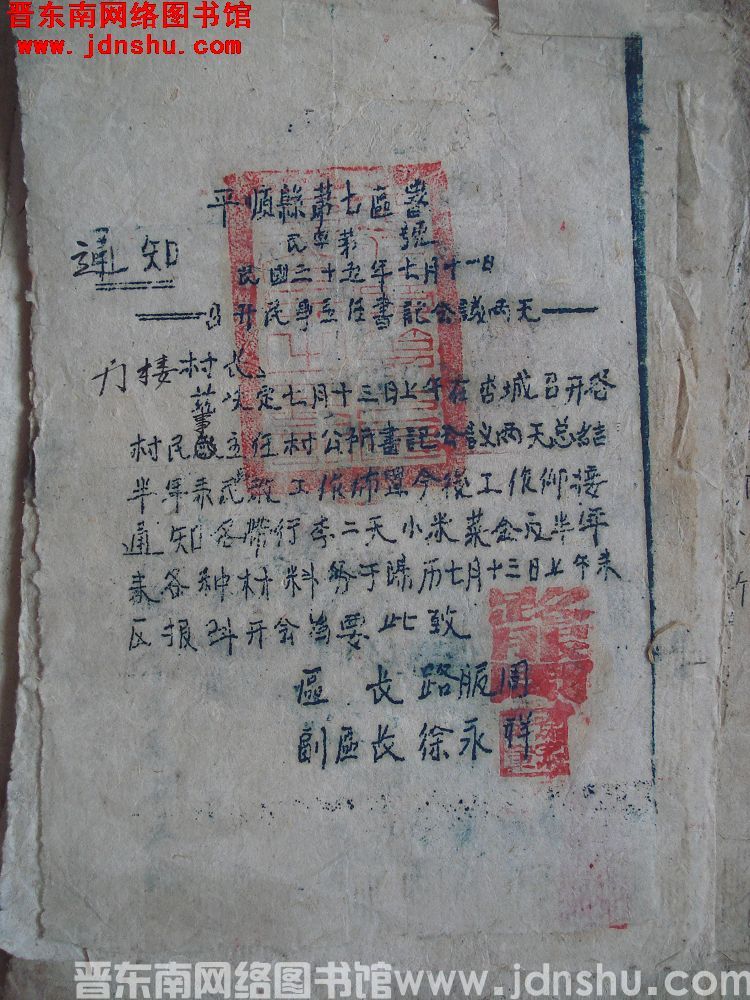 晋东南网络图书馆
www.jdnshu.com
平順縣第七區
民字第 號
通知
民國二十五年七月十一日
召开民事主任書記会議两天
村长
决定七月十三日上午在杏城召开各
村民政主任村公所書記会议两天总結
半年来民政工作佈置今後工作仰接
通知各帶行李二天小米菜金及半年
来各种材料务于陽历七月十三日上午来
区报到开会为要此致
區长路
副區长徐永祥
晋东南网络图书馆www.jdnshu.com